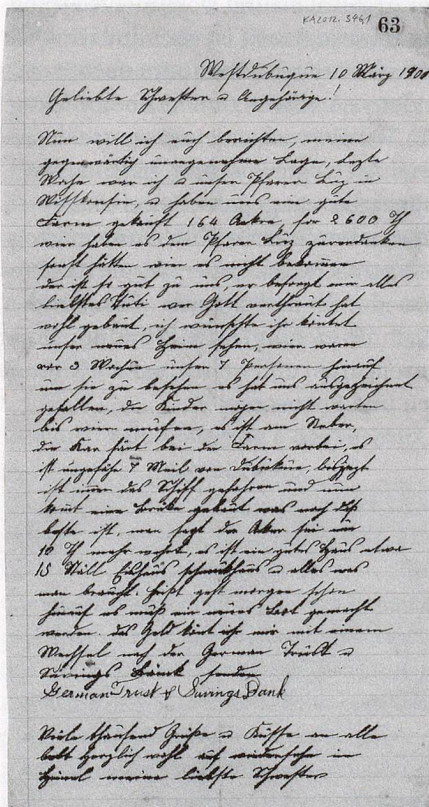 KA2012.3461 63
Westdubuque 10 März 1900
Geliebte Schwester u Angehörige!
Nun will ich euch berichten, meine
gegenwärtig unangenehme Lage, letzte
Woche war ich u unser Pfarrer Lüz in
Wisskonsin, u haben uns eine gute
Farm gekauft 164 Acker, für 2600 Th
wier haben es dem Pfarrer Lüz zuverdanken
sonst hätten wir es nicht bekommen
der ist so gut zu uns, er besorgt mir alles
liebstes wer Gott verthraut hat
wohl gebaut, ich wünschte ihr köntet
unser neues Heim sehen, wier waren
vor 3 Wochen unser 7 Personen hinauf
um sie zu besehen es hat uns ausgezeichnet
gefallen, die Kinder mögen nicht warten
bis wier es ist am
die Kar färt bei der Farm vorbei, es
ist ungefähr 7 Meil von Dubukue, bis jezt
ist imer das Schiff gefahren und nun
wird eine Brüke gebaut was noch das
beste ist, man sagt der Aker sei um
10 Th mehr wert, es ist ein gutes Haus etwa
15 Ställ u alles was
man braucht. geht morgen schon
hinauf es muß ein neues gemacht
werden. das Geld könt ihr mir mit einem
Wechsel nach der German Trust u
Savings Banck senden
German Trust & Savings Bank
Viele thausend Grüße u Küsse an alle
lebt herzlich wohl auf widersehn im
Himel meine liebste Schwester